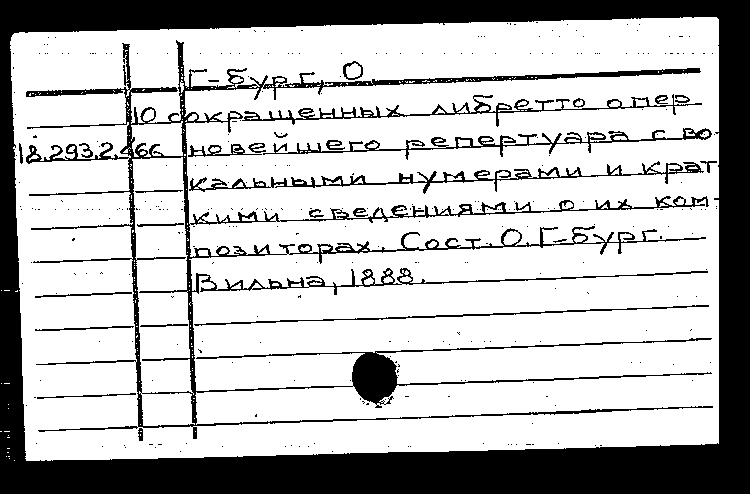 Г-бург, О.
10 сокращенных либретто опер
18.293.2.466 новейшего репертуара с во-
кальными нумерами и крат-
кими сведениями о их ком-
позиторах. Сост. О. Г-бург.
Вильна, 1888.